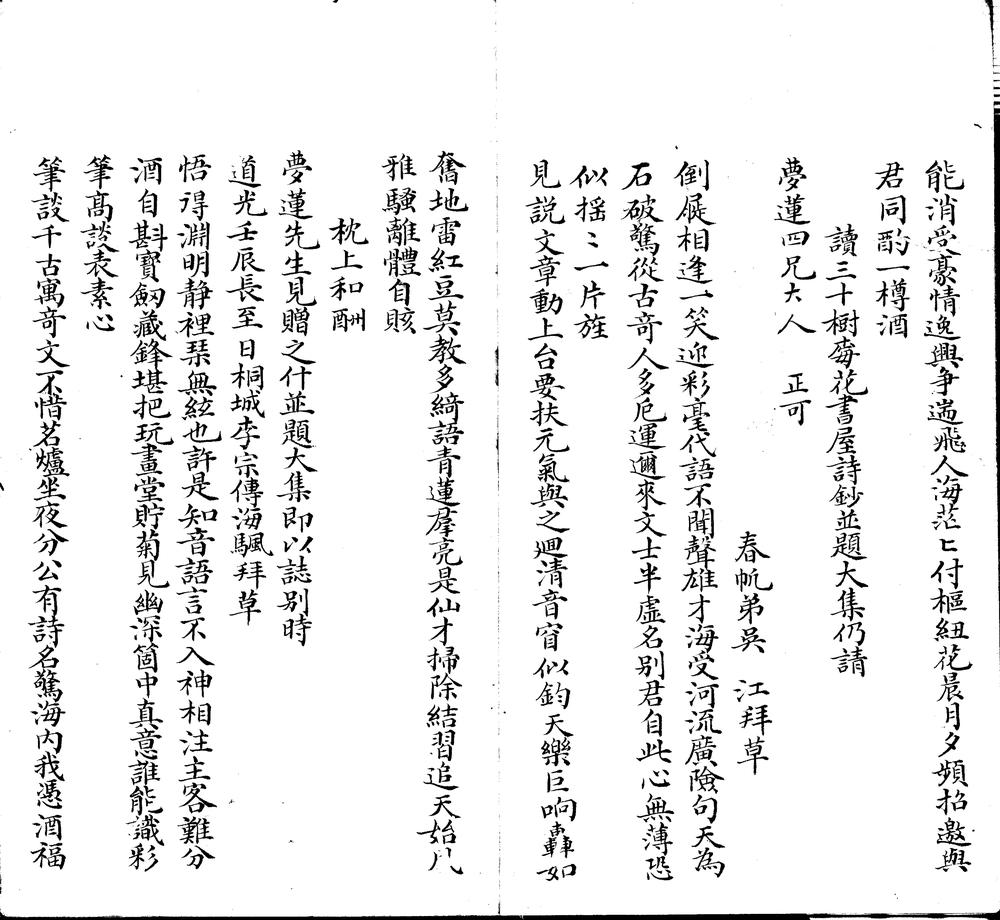 能消受豪情逸興爭遄飛人海茫〻付樞紐花晨月夕頻招邀與
君同酌一樽酒
讀三十樹每花書屋詩鈔並題大集仍請
夢蓮四兄大人 正可
春帆弟吳 江拜草
倒屣相逢一笑迎彩毫代語不聞聲雄才海受河流廣險句天為
石破驚從古奇人多厄運邇來文士半虛名别君自此心無薄恐
似揺〻一片旌
見説文章動上台要扶元氣與之廻清音窅似鈞天樂巨响轟如
奮地雷紅豆莫教多綺語青蓮羣亮是仙才掃除結習追天始凡
雅騷離體自賅
枕上和酬
夢蓮先生見贈之什並題大集即以誌别時
道光壬辰長至日桐城李宗傳海颿拜草
悟得淵明静裡琹無絃也許是知音語言不入神相注主客難分
酒自斟寳劔藏鋒堪把玩畫堂貯菊見幽深箇中真意誰能識彩
筆高談表素心
筆談千古寓奇文不惜茗爐坐夜分公有詩名驚海内我憑酒福